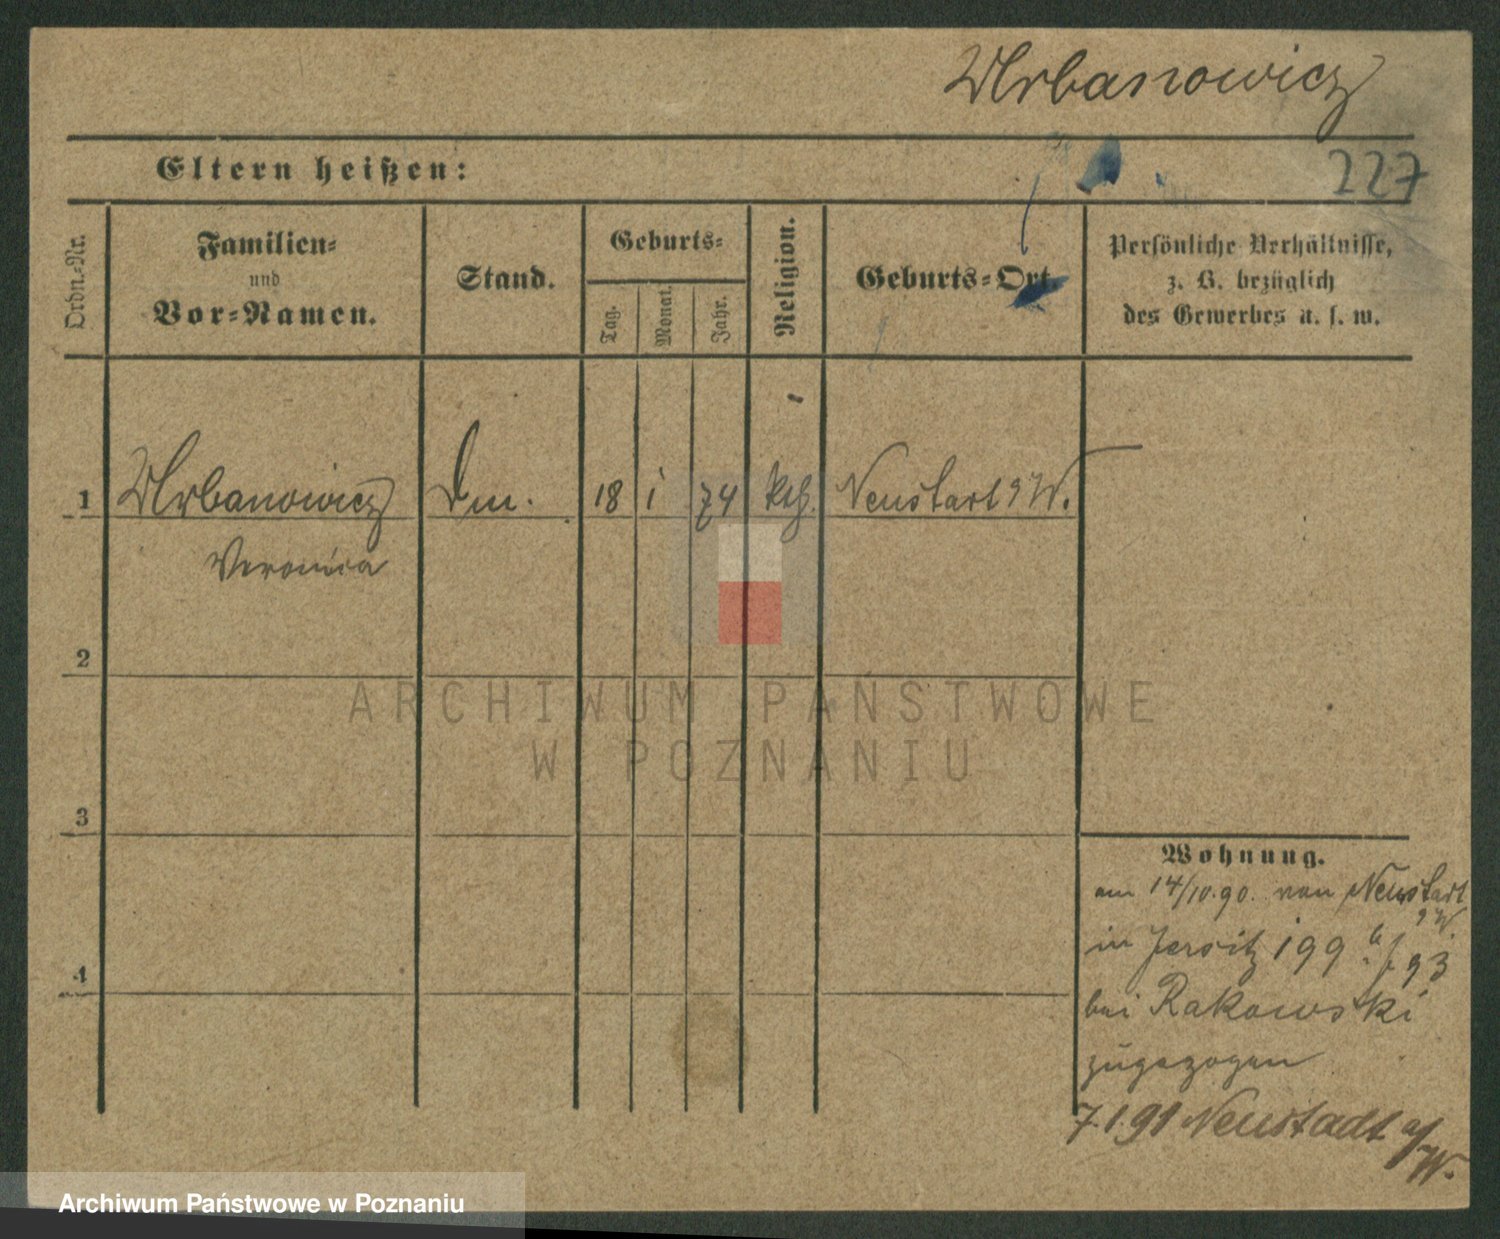 Urbanowicz
Eltern heißen:
227
Ordn.-Nr.
Familien-
und
Vor-Namen.
Stand.
Geburts-
Tag.
Monat.
Jahr.
Religion.
Geburts-Ort.
Persönliche Verhältnisse,
z. B. bezüglich
des Gewerbes u. s. w.
1 Urbanowicz 18 1 74 kth. Neustart W.
Veronica
2
3
4
Wohnung.
am 14/10.90. von Neustadt
W.
in Jersitz 199
bei Rakowski
zugezogen
7.1.91 Neustadt a/W.
ARCHIWUM PAŃSTWOWE
W POZNANIU
Archiwum Państwowe w Poznaniu